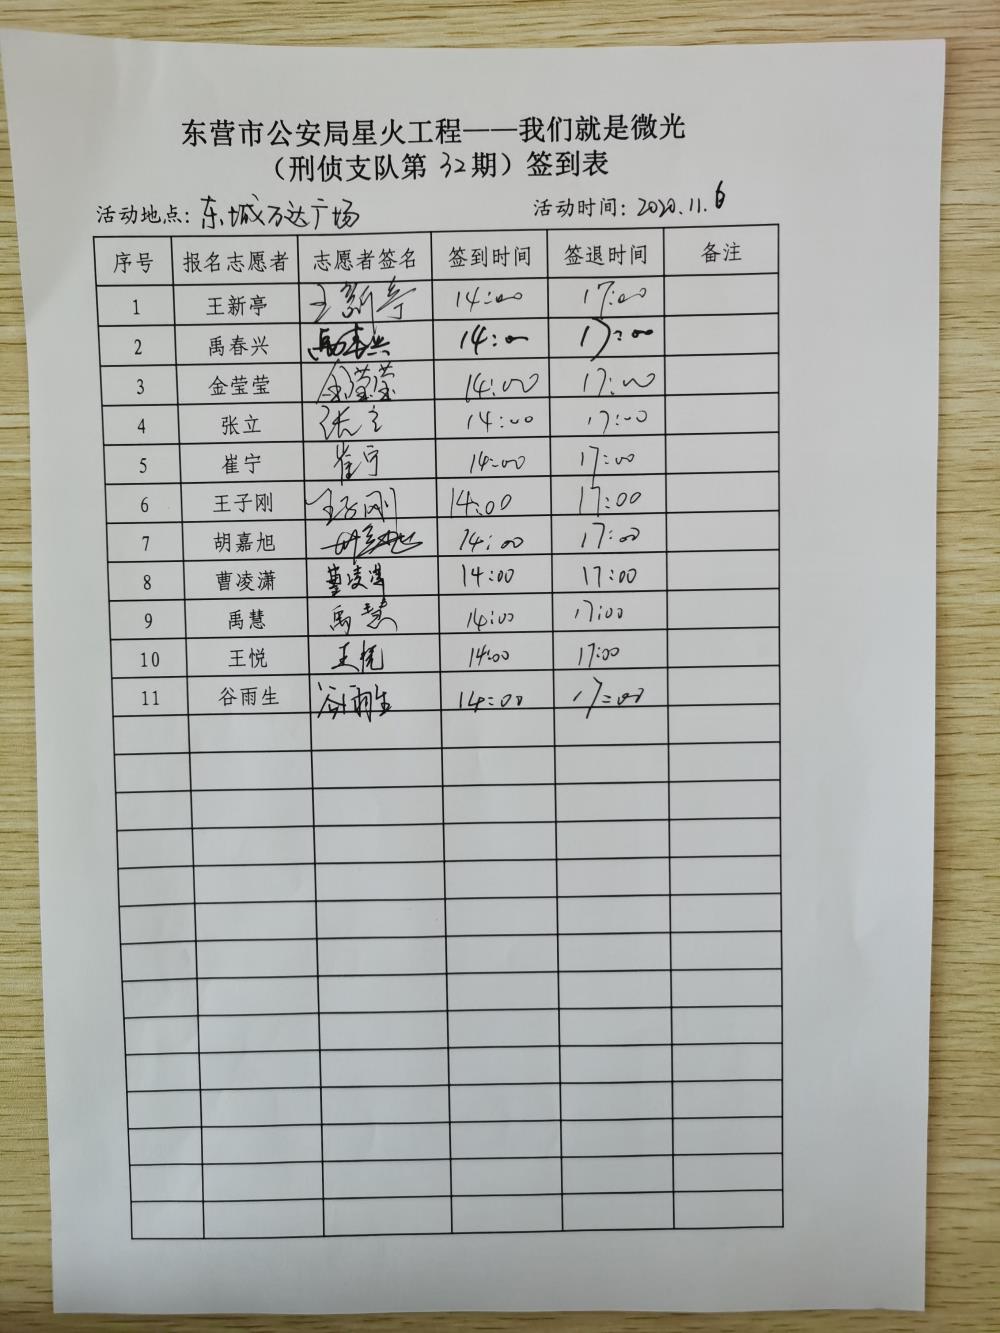 东营市公安局星火工程——我们就是微光
（刑侦支队第 32 期）签到表
活动地点：东城万达广场 活动时间：2020.11.6
序号 报名志愿者 志愿者签名 签到时间 签退时间 备注
1 王新亭 王新亭 14:00 17:00
2 禹春兴 禹春兴 14:00 17:00
3 金莹莹 金莹莹 14:00 17:00
4 张立 张立 14:00 17:00
5 崔宁 崔宁 14:00 17:00
6 王子刚 王子刚 14:00 17:00
7 胡嘉旭 胡嘉旭 14:00 17:00
8 曹凌潇 曹凌潇 14:00 17:00
9 禹慧 禹慧 14:00 17:00
10 王悦 王悦 14:00 17:00
11 谷雨生 谷雨生 14:00 17:00